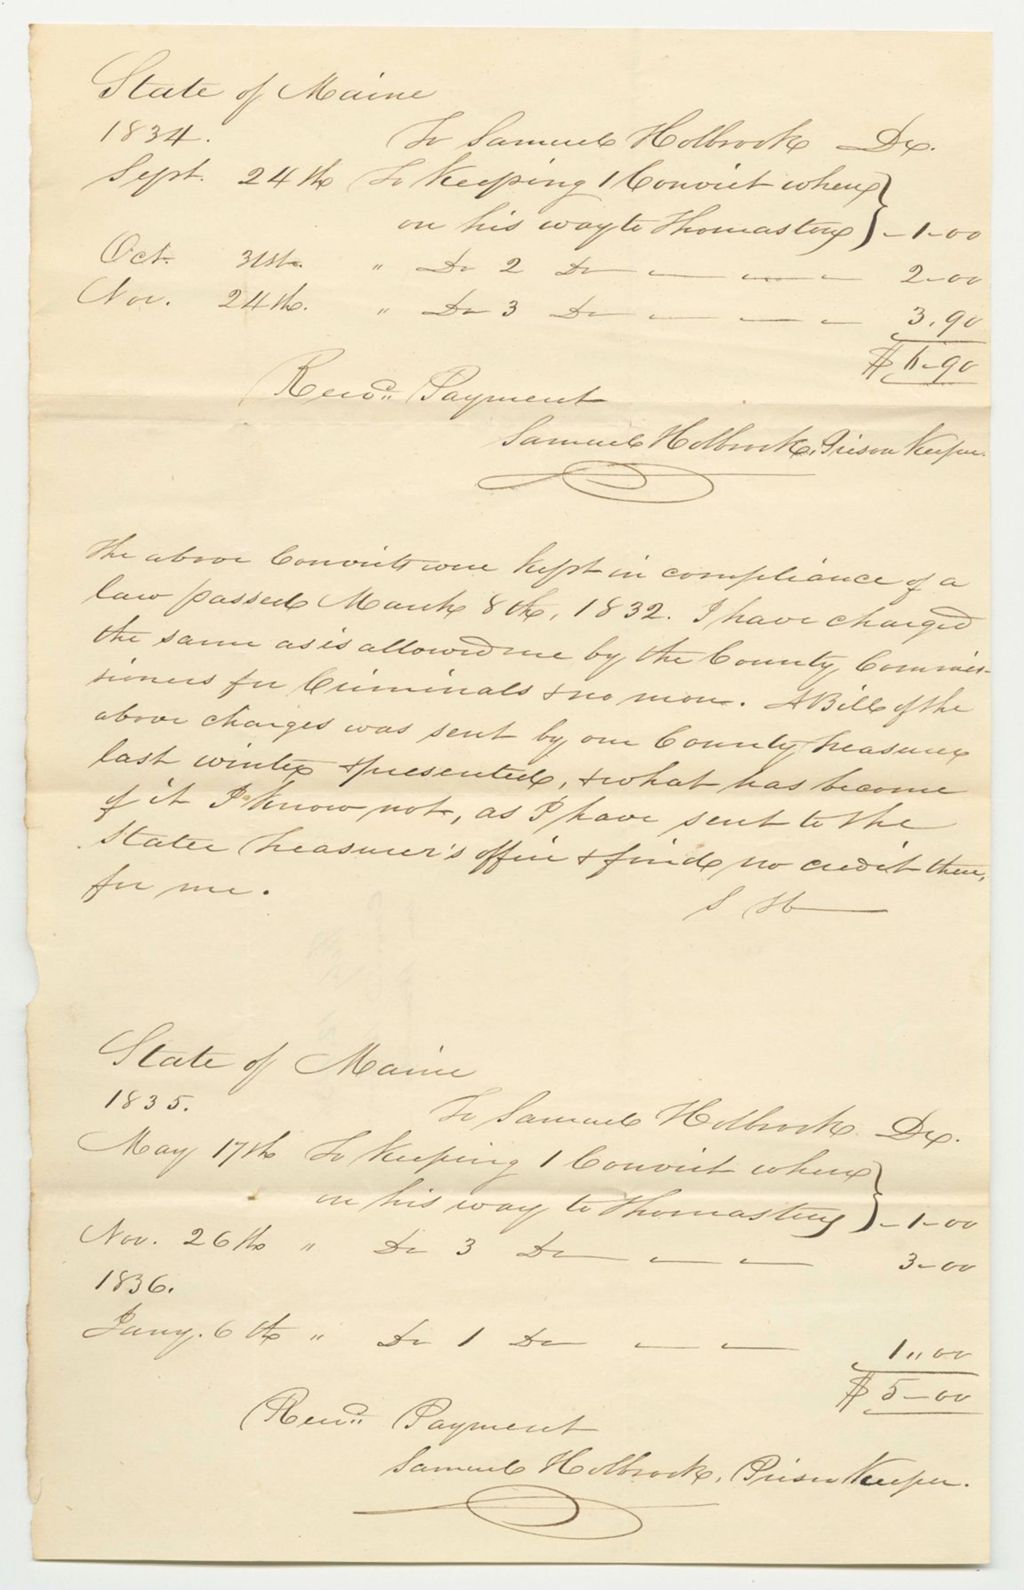 State of Maine
1834. To Samuel Holbrook Dr.
Sept. 24th To Keeping 1 Convict when
on his way to Thomaston } - 1-00
Oct. 31st. " Do 2 Do — — — 2-00
Nov. 24th. " Do 3 Do — — — 3.90
$ 6-90
Recd. Payment
Samuel Holbrook, Prison Keeper.
The above Convicts were kept in compliance of a
law passed March 8th, 1832. I have charged
the same as is allowed me by the County Commis-
sioners for Criminals & no more. A Bill of the
above charges was sent by our County Treasurer
last winter & presented, & what has become
of it I know not, as I have sent to the
State Treasurer's office & find no credit there,
for me.
S H
State of Maine
1835. To Samuel Holbrook Dr.
May 17th To Keeping 1 Convict when
on his way to Thomaston } - 1-00
Nov. 26th " Do 3 Do — — 3-00
1836.
Jany. 6th " Do 1 Do — — 1,,00
$ 5-00
Recd. Payment
Samuel Holbrook, Prison Keeper.